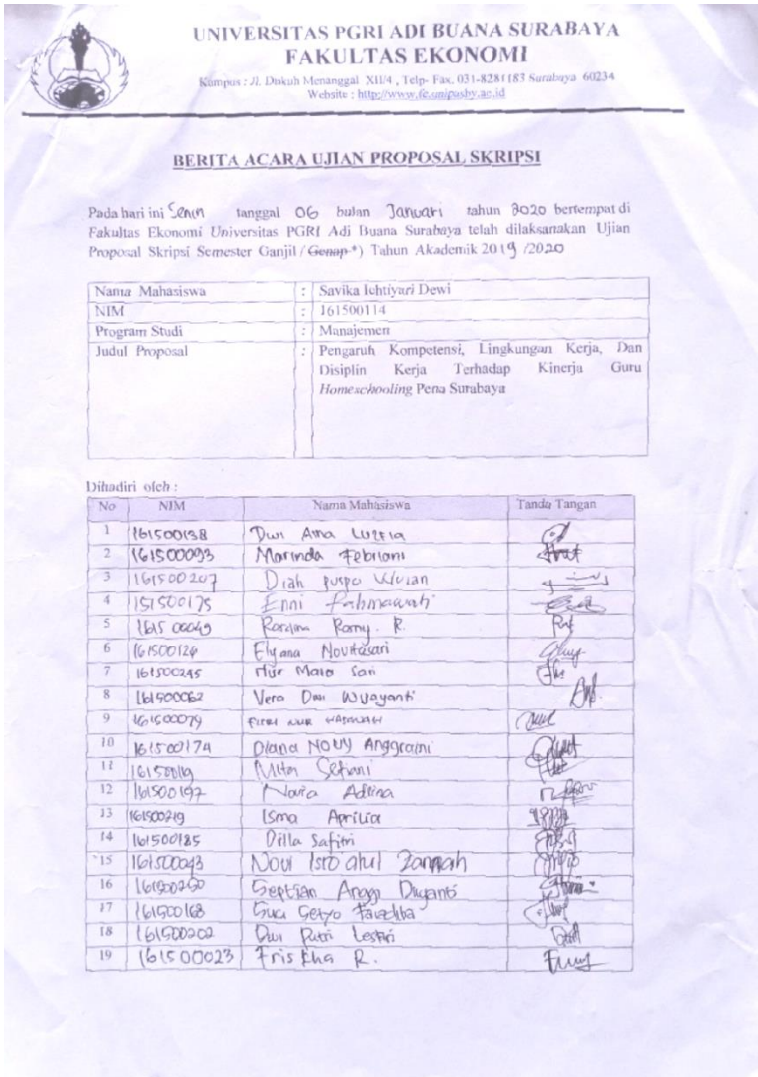 UNIVERSITAS PGRI ADI BUANA SURABAYA
FAKULTAS EKONOMI
Kampus : Jl. Dukuh Menanggal XII/4 , Telp- Fax. 031-8281183 Surabaya 60234
Website : http://www.fe.unipasby.ac.id
BERITA ACARA UJIAN PROPOSAL SKRIPSI
Pada hari ini Senin tanggal 06 bulan Januari tahun 2020 bertempat di
Fakultas Ekonomi Universitas PGRI Adi Buana Surabaya telah dilaksanakan Ujian
Proposal Skripsi Semester Ganjil / Genap *) Tahun Akademik 2019 /2020
Nama Mahasiswa : Savika Ichtiyari Dewi
NIM : 161500114
Program Studi : Manajemen
Judul Proposal : Pengaruh Kompetensi, Lingkungan Kerja, Dan
Disiplin Kerja Terhadap Kinerja Guru
Homeschooling Pena Surabaya
Dihadiri oleh :
No NIM Nama Mahasiswa Tanda Tangan
1 161500138 Dwi Aina Lutfia
2 161500093 Marinda Febriani
3 161500207 Diah puspa Wulan
4 151500175 Enni Rahmawati
5 161500049 Romy. R.
6 161500124 Elyana Novitasari
7 161500245 Nur Mala Sari
8 161500062 Vera Dwi Wijayanti
9 161500079 FITRI NUR
10 161500174 Diana NOVY Anggraini
11 161500119 Mita Setiani
12 161500197 Novia Adlina
13 161500219 Isma Aprilia
14 161500185 Dilla Safitri
15 161500043 Novi Isro atul Jannah
16 161500250 Septian Anggi Dwiyanti
17 161500168 Suci Setyo Faradiba
18 161500202 Dwi Putri Lestari
19 161500023 Friskha R.